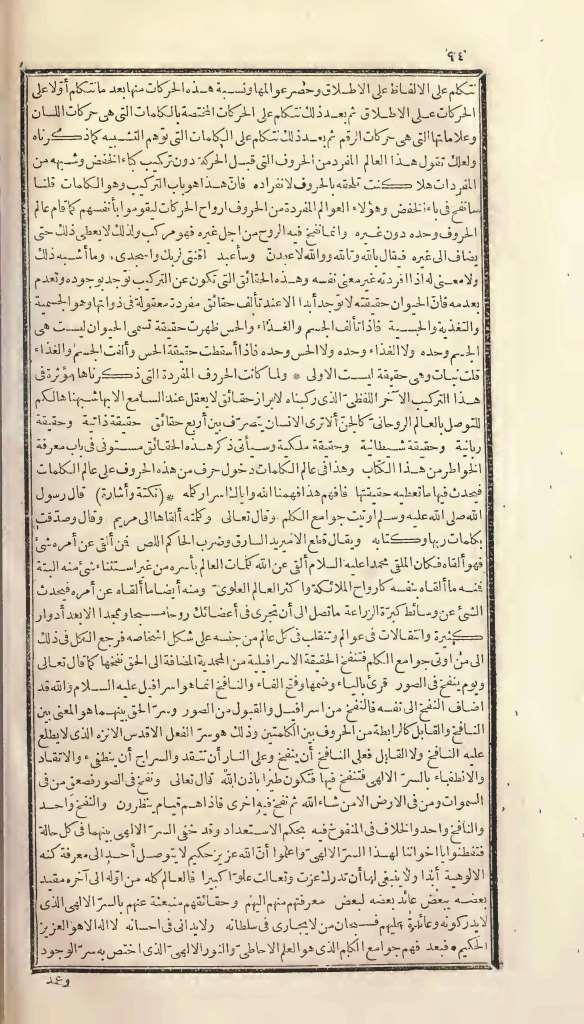 ٩٤
نتكلم على الالفاظ على الاطلاق وحصر عوالمها ونسبة هذه الحركات منها بعد ما نتكلم أوّلا على
الحركات على الاطلاق ثم بعد ذلك نتكلم على الحركات المختصة بالكلمات التى هى حركات اللسان
وعلاماتها التى هى حركات الرقم ثم بعد ذلك نتكلم على الكلمات التى توهم التشبيه كما ذكرناه
ولعلك تقول هذا العالم المفرد من الحروف التى قبل الحركة دون تركيب كباء الخفض وشبهه من
المفردات هلا كنت تلحقه بالحروف لانفراده فانّ هذا هو باب التركيب وهو الكلمات قلنا
ما نفخ فى باء الخفض وهؤلاء العوالم المفردة من الحروف ارواح الحركات ليقوموا بأنفسهم كما قام عالم
الحروف وحده دون غيره وانما نفخ فيه الروح من اجل غيره فهو مركب ولذلك لا يعطى ذلك حتى
يضاف الى غيره فيقال بالله وتالله ووالله لاعبدنّ وسأعبد اقنتى لربك واسجدى وما أشبه ذلك
ولا معنى له اذا أفردته غير معنى نفسه وهذه الحقائق التى تكون عن التركيب توجد بوجوده وتعدم
بعدمه فانّ الحيوان حقيقته لا توجد أبدا الا عند تألف حقائق مفردة معقولة فى ذواتها وهو الجسمية
والتغذية والحسية فاذا تألف الجسم والغذاء والحس ظهرت حقيقة تسمى الحيوان ليست هى
الجسم وحده ولا الغذاء وحده ولا الحس وحده فاذا أسقطت حقيقة الحس وألفت الجسم والغذاء
قلت نبات وهى حقيقة ليست الاولى * ولما كانت الحروف المفردة التى ذكرناها مؤثرة فى
هذا التركيب الآخر اللفظىّ الذى ركبناه لابراز حقائق لا يعقل عند السامع الا بها شبهناها لكم
للتوصل بالعالم الروحانىّ كالجنّ ألا ترى الانسان يتصرف بين أربع حقائق حقيقة ذاتية وحقيقة
ربانية وحقيقة شيطانية وحقيقة ملكية وسيأتى ذكر هذه الحقائق مستوفى فى باب معرفة
الخواطر من هذا الكتاب وهذا فى عالم الكلمات دخول حرف من هذه الحروف على عالم الكلمات
فيحدث فيها ما تعطيه حقيقتها فافهم هذا فهمنا الله واياك اسرار كله *(نكتة واشارة) قال رسول
الله صلى الله عليه وسلم اوتيت جوامع الكلم وقال تعالى وكلمته ألقاها الى مريم وقال وصدّقت
بكلمات ربها وكتابه ويقال قطع الامير يد السارق وضرب الحاكم اللص فمن ألقى عن أمره شئ
فهو ألقاه فكان الملقى محمدا عليه السلام ألقى عن الله كلمات العالم بأسره من غير استثناء شئ منه البتة
فمنه ما ألقاه بنفسه كارواح الملائكة واكثر العالم العلوىّ ومنه أيضا ما ألقاه عن أمره فيحدث
الشئ عن وسائط كبرّة الزراعة ما تصل الى أن تجرى فى أعضائك روحا مسبحا وممجدا الا بعد أدوار
كثيرة وانتقالات فى عوالم وتنقلب فى كل عالم من جنسه على شكل اشخاصه فرجع الكل فى ذلك
الى من اوتى جوامع الكلم فتنفخ الحقيقة الاسرافيلية من المحمدية المضافة الى الحق نفخها كما قال تعالى
ويوم ينفخ فى الصور قرئ بالياء وضمها وفتح الفاء والنافخ انما هو اسرافيل عليه السلام والله قد
أضاف النفخ الى نفسه فالنفخ من اسرافيل والقبول من الصور وسرّ الحق بينهما هو المعنى بين
النافخ والقابل كالرابطة من الحروف بين الكلمتين وذلك هو سرّ الفعل الاقدس الانزه الذى لا يطلع
عليه النافخ ولا القابل فعلى النافخ أن ينفخ وعلى النار أن تتقد والسراج أن ينطفىء والاتقاد
والانطفاء بالسرّ الالهى فتنفخ فيها فتكون طيرا باذن الله قال تعالى ونفخ فى الصور فصعق من فى
السموات ومن فى الارض الا من شاء الله ثم نفخ فيه اخرى فاذا هم قيام ينظرون والنفخ واحد
والنافخ واحد والخلاف فى المنفوخ فيه بحكم الاستعداد وقد خفى السرّ الالهى بينهما فى كل حالة
فتفطنوا يا اخواننا لهذا السرّ الالهىّ واعلموا أنّ الله عزيز حكيم لا يتوصل أحد الى معرفة كنه
الالوهية أبدا ولا ينبغى لها أن تدرك عزت وتعالت علوّا كبيرا فالعالم كله من اوّله الى آخره مقيد
بعضه ببعض عابد بعضه لبعض معرفتهم منهم اليهم وحقائقهم منبعثة عنهم بالسرّ الالهى الذى
لا يدركونه وعائدة عليهم فسبحان من لا يجارى فى سلطانه ولا يدانى فى احسانه لا اله الا هو العزيز
الحكيم * فبعد فهم جوامع الكلم الذى هو العلم الاحاطىّ والنور الالهىّ الذى اختص به سرّ الوجود
وعمد